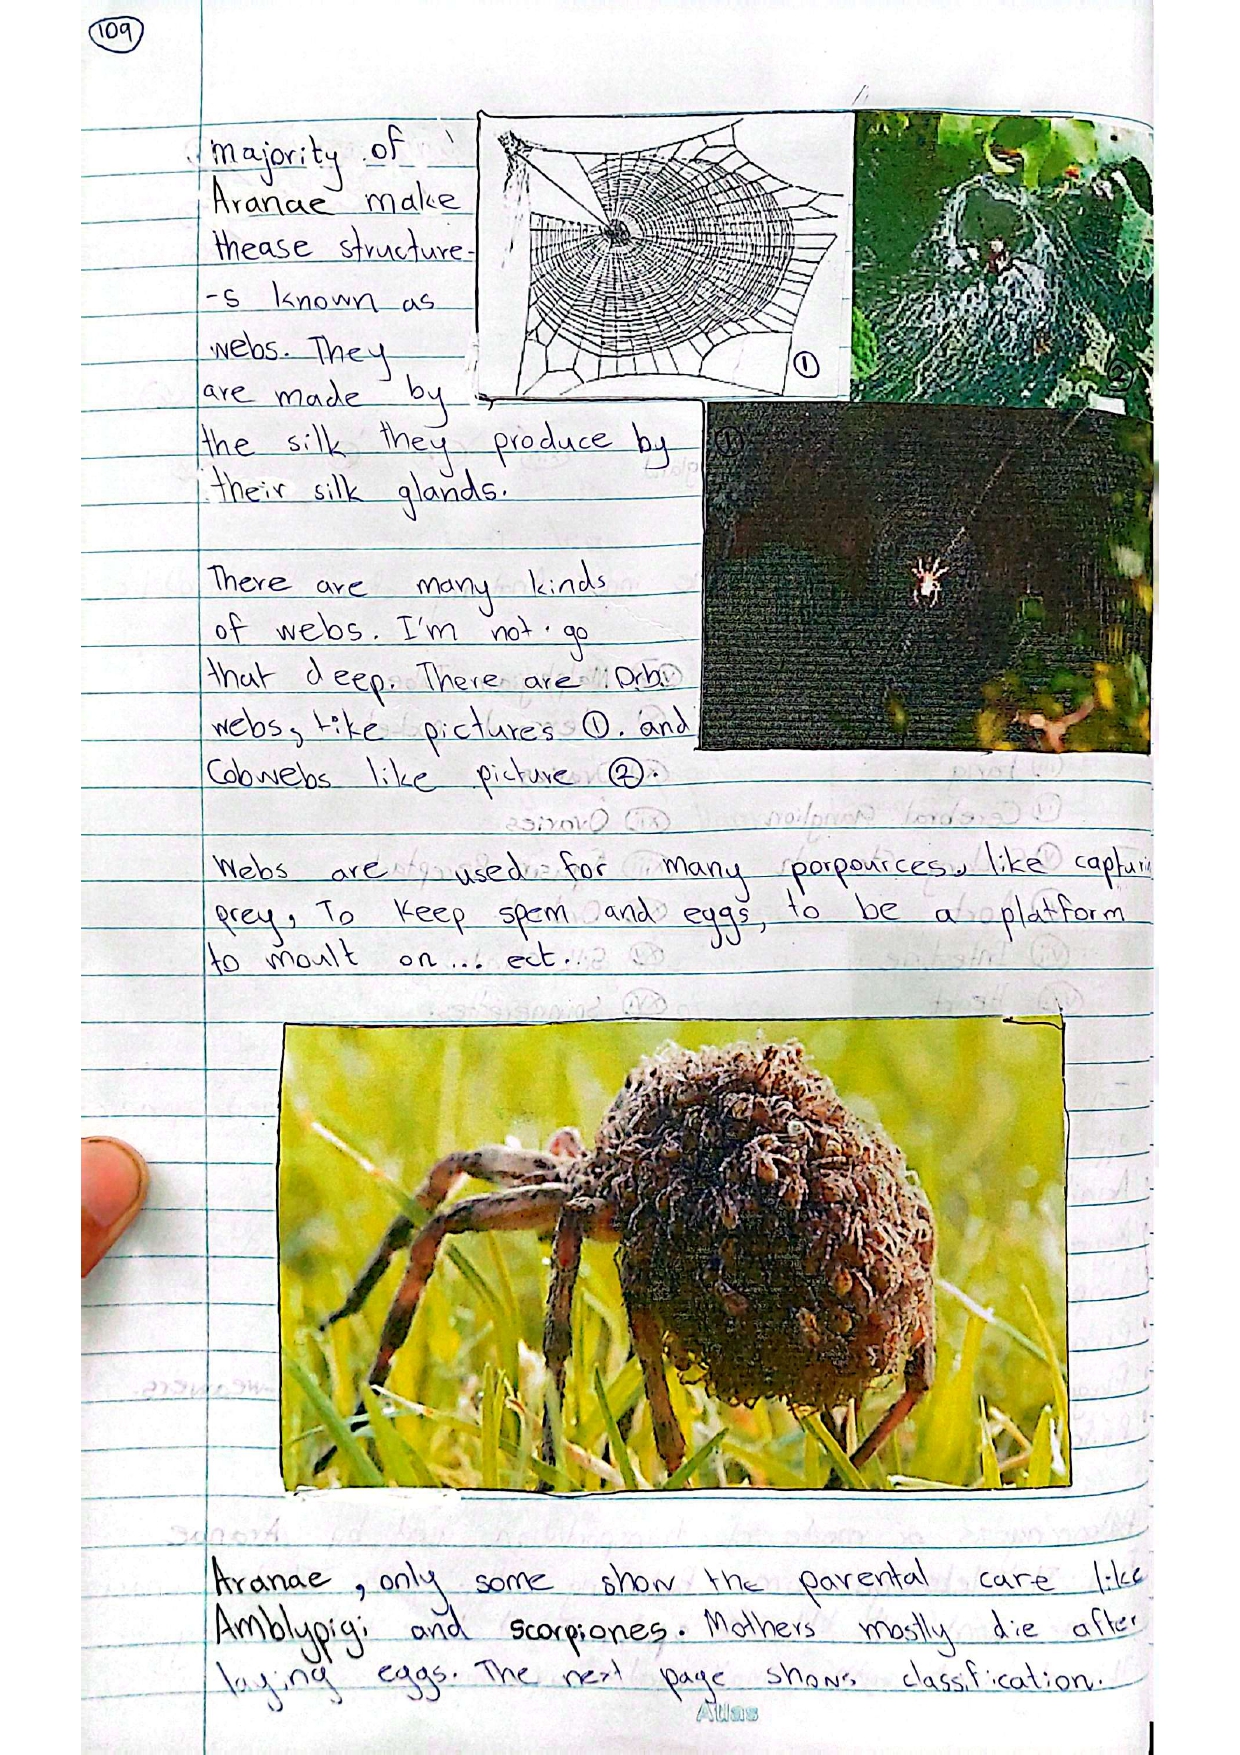 109
majority of
Aranae make
thease structure-
-s known as
webs. They
are made by
the silk they produce by
their silk glands.
There are many kinds
of webs. I'm not go
that deep. There are Orb
webs, like pictures ①. and
Cobwebs like picture ②.
Webs are used for many porpources, like capturi
prey, To keep spem and eggs, to be a platform
to moult on... ect..
①
②
①
Aranae, only some show the parental care like
Amblypigi and scorpiones. Mothers mostly die after
laying eggs. The next page shows classification.
Atlas